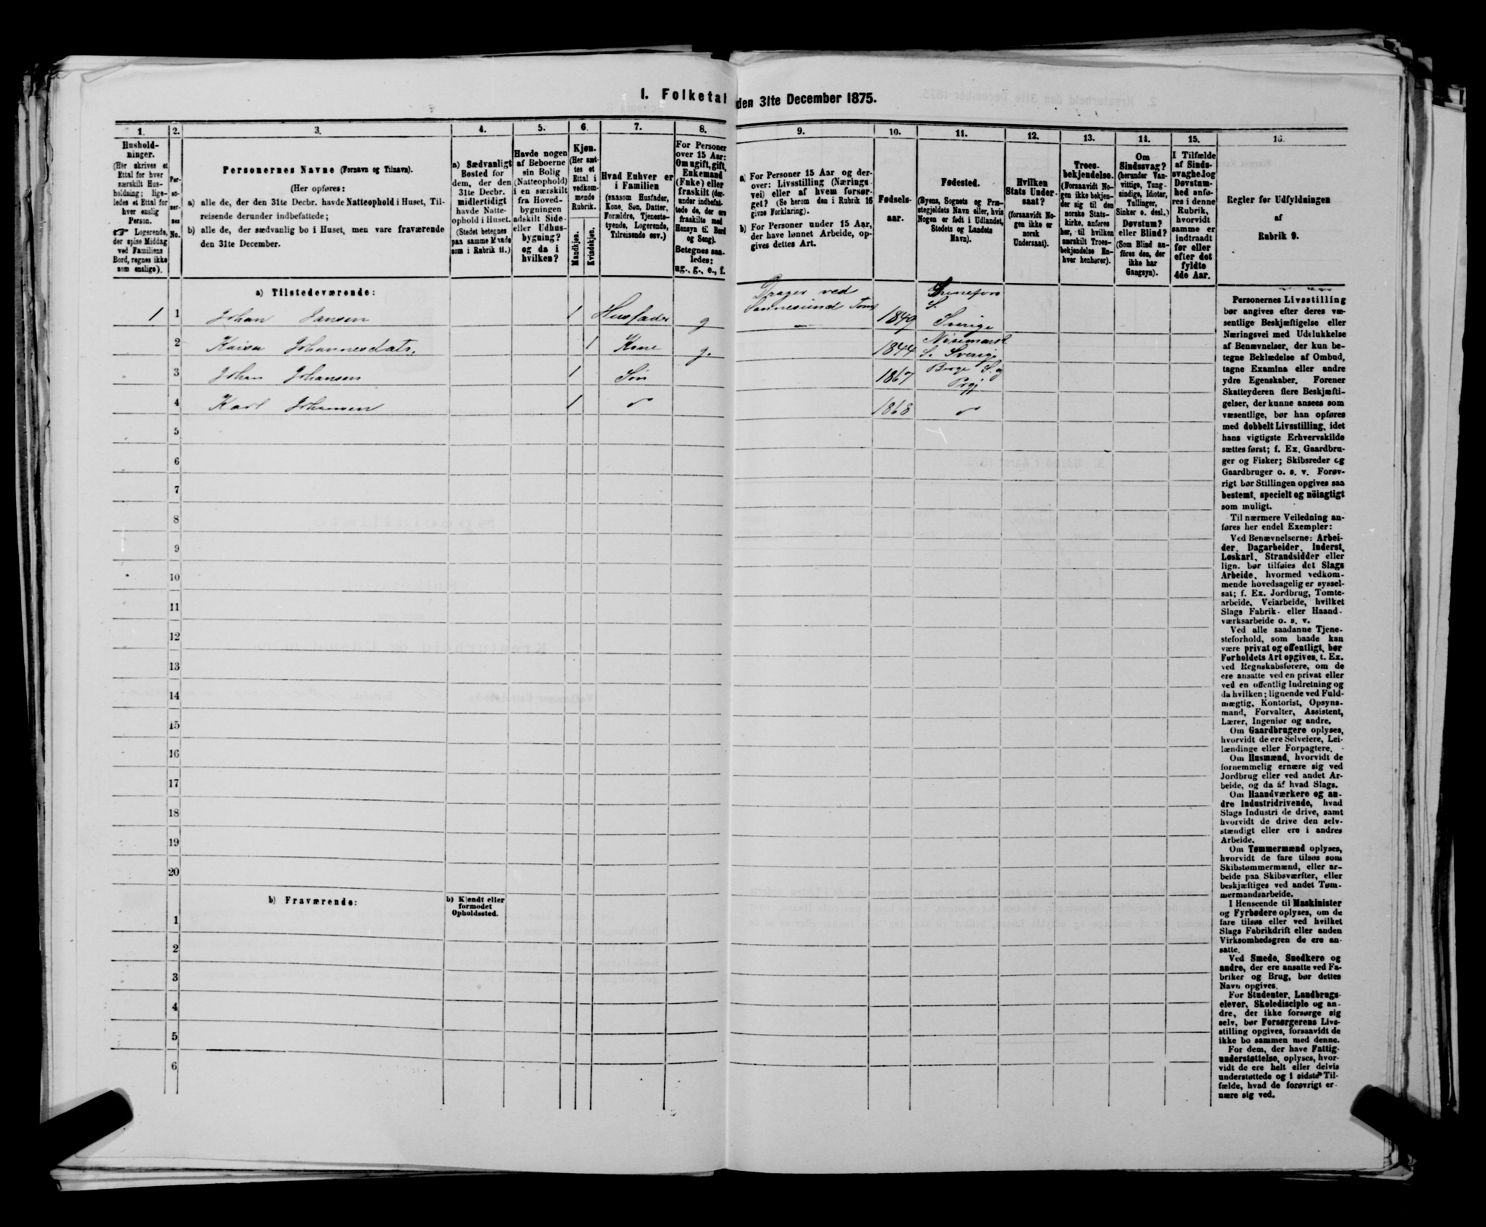 1. Folketal den 31te December 1875.
1.
Hushold-
ninger.
(Her skrives et
Ettal for hver
særskilt Hus-
holdning; lige-
ledes et Ettal for
hver enslig
Person.
☞ Logerende,
der spise Middag
ved Familiens
Bord, regnes ikke
som enslige).
2.
Per-
so-
ner-
nes
No.
3.
Personernes Navne (Fornavn og Tilnavn).
(Her opføres:
a) alle de, der den 31te Decbr. havde Natteophold i Huset, Til-
reisende derunder indbefattede;
b) alle de, der sædvanlig bo i Huset, men vare fraværende
den 31te December.
4.
a) Sædvanligt
Bosted for
dem, der den
31te Decbr.
midlertidigt
havde Natte-
ophold i Huset.
(Stedet betegnes
paa samme Maade
som i Rubrik 11.)
5.
Havde nogen
af Beboerne
sin Bolig
(Natteophold)
i en særskilt
fra Hoved-
bygningen
adskilt Side-
eller Udhus-
bygning?
og da i
hvilken?
6.
Kjøn.
(Her sæt-
tes et
Ettal i
vedkom-
mende
Rubrik.
Mandkjøn.
Kvindekjøn.
7.
Hvad Enhver er
i Familien
(saasom Husfader,
Kone, Søn, Datter,
Forældre, Tjeneste-
tyende, Logerende,
Tilreisende osv.)
8.
For Personer
over 15 Aar:
Om ugift, gift,
Enkemand
(Enke) eller
fraskilt (der-
under indbefat-
tede de, der ere
fraskilte med
Hensyn til Bord
og Seng).
Betegnes saa-
ledes:
ug., g., e., f.
9.
a) For Personer 15 Aar og der-
over: Livsstilling (Nærings-
vei) eller af hvem forsør-
get? (Se herom den i Rubrik 16
givne Forklaring).
b) For Personer under 15 Aar,
der have lønnet Arbeide, op-
gives dettes Art.
10.
Fødsels-
aar.
11.
Fødested.
(Byens, Sognets og Præ-
stegjeldets Navn eller, hvis
Nogen er født i Udlandet,
Stedets og Landets
Navn).
12.
Hvilken
Stats Under-
saat?
(forsaavidt No-
gen ikke er
norsk
Undersaat).
13.
Troes-
bekjendelse.
(Forsaavidt No-
gen ikke bekjen-
der sig til den
norske Stats-
kirke, anføres
her, til hvilken
særskilt Troes-
bekjendelse En-
hver henhører).
14.
Om
Sindssvag?
(herunder Van-
vittige, Tung-
sindige, Idioter,
Tullinger,
Sinker o. desl.)
Døvstum?
eller Blind?
(Som Blind an-
føres den, der
ikke har
Gangsyn).
15.
I Tilfælde
af Sinds-
svaghed og
Døvstum-
hed anfø-
res i denne
Rubrik,
hvorvidt
samme er
indtraadt
før eller
efter det
fyldte
4de Aar.
16.
Regler før Udfyldningen
af
Rubrik 9.
a) Tilstedeværende:
1 1 Johan Jansen 1 Husfader g Drager ved Sannesund 1849 S. Sverige
2 Kaisa Johannesdatr. 1 Kone g. 1844 S. Sverig
3 Johan Johansen 1 Søn 1867 Borge S. og Prgj.
4 Karl Johansen 1 〃 1868 〃
5
6
7
8
9
10
11
12
13
14
15
16
17
18
19
20
b) Fraværende:
b) Kjendt eller
formodet
Opholdssted.
1
2
3
4
5
6
Personernes Livsstilling
bør angives efter deres væ-
sentlige Beskjæftigelse eller
Næringsvei med Udelukkelse
af Benævnelser, der kun be-
tegne Beklædelse af Ombud,
tagne Examina eller andre
ydre Egenskaber. Forener
Skatteyderen flere Beskjæfti-
gelser, der kunne ansees som
væsentlige, bør han opføres
med dobbelt Livsstilling, idet
hans vigtigste Erhvervskilde
sættes først; f. Ex. Gaardbru-
ger og Fisker; Skibsreder og
Gaardbruger o. s. v. Forøv-
rigt bør Stillingen opgives saa
bestemt, specielt og nöiagtigt
som muligt.
Til nærmere Veiledning an-
føres her endel Exempler:
Ved Benævnelserne: Arbei-
der, Dagarbeider, Inderst,
Løskarl, Strandsidder eller
lign. bør tilføies det Slags
Arbeide, hvormed vedkom-
mende hovedsagelig er syssel-
sat; f. Ex. Jordbrug, Tomte-
arbeide, Veiarbeide, hvilket
Slags Fabrik- eller Haand-
værksarbeide o. s. v.
Ved alle saadanne Tjene-
steforhold, som baade kan
være privat og offentligt, bør
Forholdets Art opgives, t. Ex.
ved Regnskabsførere, om de
ere ansatte ved en privat eller
ved en offentlig Indretning og
da hvilken; lignende ved Fuld-
mægtig, Kontorist, Opsyns-
mand, Forvalter, Assistent,
Lærer, Ingeniør og andre.
Om Gaardbrugere oplyses,
hvorvidt de ere Selveiere, Lei-
lændinge eller Forpagtere.
Om Husmænd, hvorvidt de
fornemmelig ernære sig ved
Jordbrug eller ved andet Ar-
beide, og da af hvad Slags.
Om Haandværkere og an-
dre industridrivende, hvad
Slags Industri de drive, samt
hvorvidt de drive den selv-
stændigt eller ere i andres
Arbeide.
Om Tømmermænd oplyses,
hvorvidt de fare tilsøs som
Skibstømmermænd, eller ar-
beide paa Skibsværfter, eller
beskjæftiges ved andet Tøm-
mermandsarbeide.
I Henseende til Maskinister
og Fyrbødere oplyses, om de
fare tilsøs eller ved hvilket
Slags Fabrikdrift eller anden
Virksomhedsgren de ere an-
satte.
Ved Smede, Snedkere og
andre, der ere ansatte ved Fa-
briker og Brug, bør dettes
Navn opgives.
For Studenter, Landbrugs-
elever, Skoledisciple og an-
dre, der ikke forsørge sig
selv, bør Forsørgerens Livs-
stilling opgives, forsaavidt de
ikke bo sammen med denne.
For dem, der have Fattig-
understøttelse, oplyses, hvor-
vidt de ere helt eller delvis
understøttede og i sidste Til-
fælde, hvad de forøvrigt er-
nære sig ved.